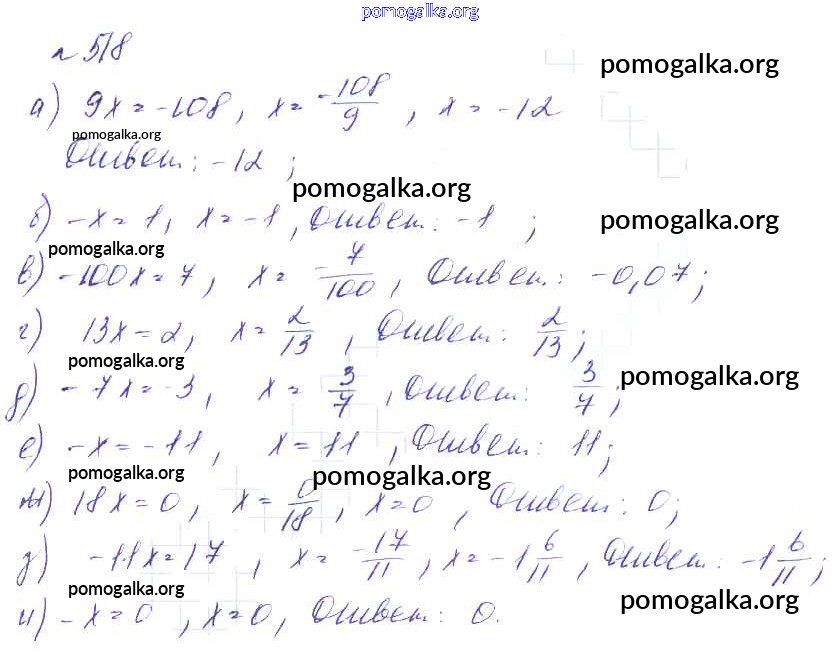 pomogalka.org
№ 518
pomogalka.org
а) 9x = -108, x = -108/9, x = -12
pomogalka.org
Ответ: -12;
pomogalka.org
б) -x = 1, x = -1, Ответ: -1;
pomogalka.org
pomogalka.org
в) -100x = 7, x = -7/100, Ответ: -0,07;
г) 13x = 2, x = 2/13, Ответ: 2/13;
pomogalka.org
д) -7x = -3, x = 3/7, Ответ: 3/7;
pomogalka.org
е) -x = -11, x = 11, Ответ: 11;
pomogalka.org
pomogalka.org
ж) 18x = 0, x = 0/18, x = 0, Ответ: 0;
з) -11x = 17, x = -17/11, x = -1 6/11, Ответ: -1 6/11;
pomogalka.org
и) -x = 0, x = 0, Ответ: 0.
pomogalka.org